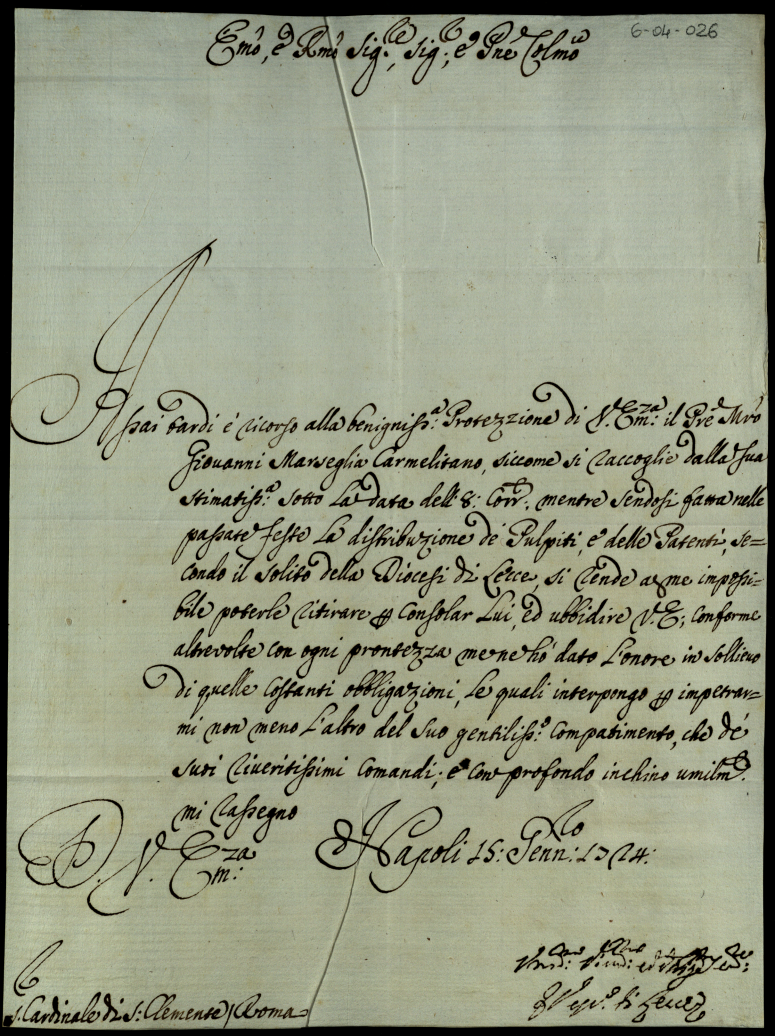 6-04-026
Emo, e Rmo Sig.re, Sig.r, e Pne Colmo
Assai tardi è ricorso alla benigniss.a Protezzione di V. Em.za: il Prē Mrō
Giovanni Marseglia Carmelitano, siccome si raccoglie dalla sua
stimatiss.a sotto la data dell' 8: Corr.e, mentre sendosi fatta nelle
passate feste la distribuzione de' Pulpiti, e delle Patenti, se=
condo il solito della Diocesi di Lecce, si rende a me impossi=
bile poterle ritirare p consolar lui, ed ubbidire V. E; conforme
altrevolte con ogni prontezza mene hó dato l'onore in sollievo
di quelle costanti obbligazioni, le quali interpongo p impetrar=
mi non meno l'altro del suo gentiliss.o compatimento, che de'
suoi riveritissimi comandi; e con profondo inchino umilm.e
mi rassegno
D. V. Em.za: Napoli 15: Genn.ro: 1724:
S. Cardinale di S: Clemente / Roma
di Lecce